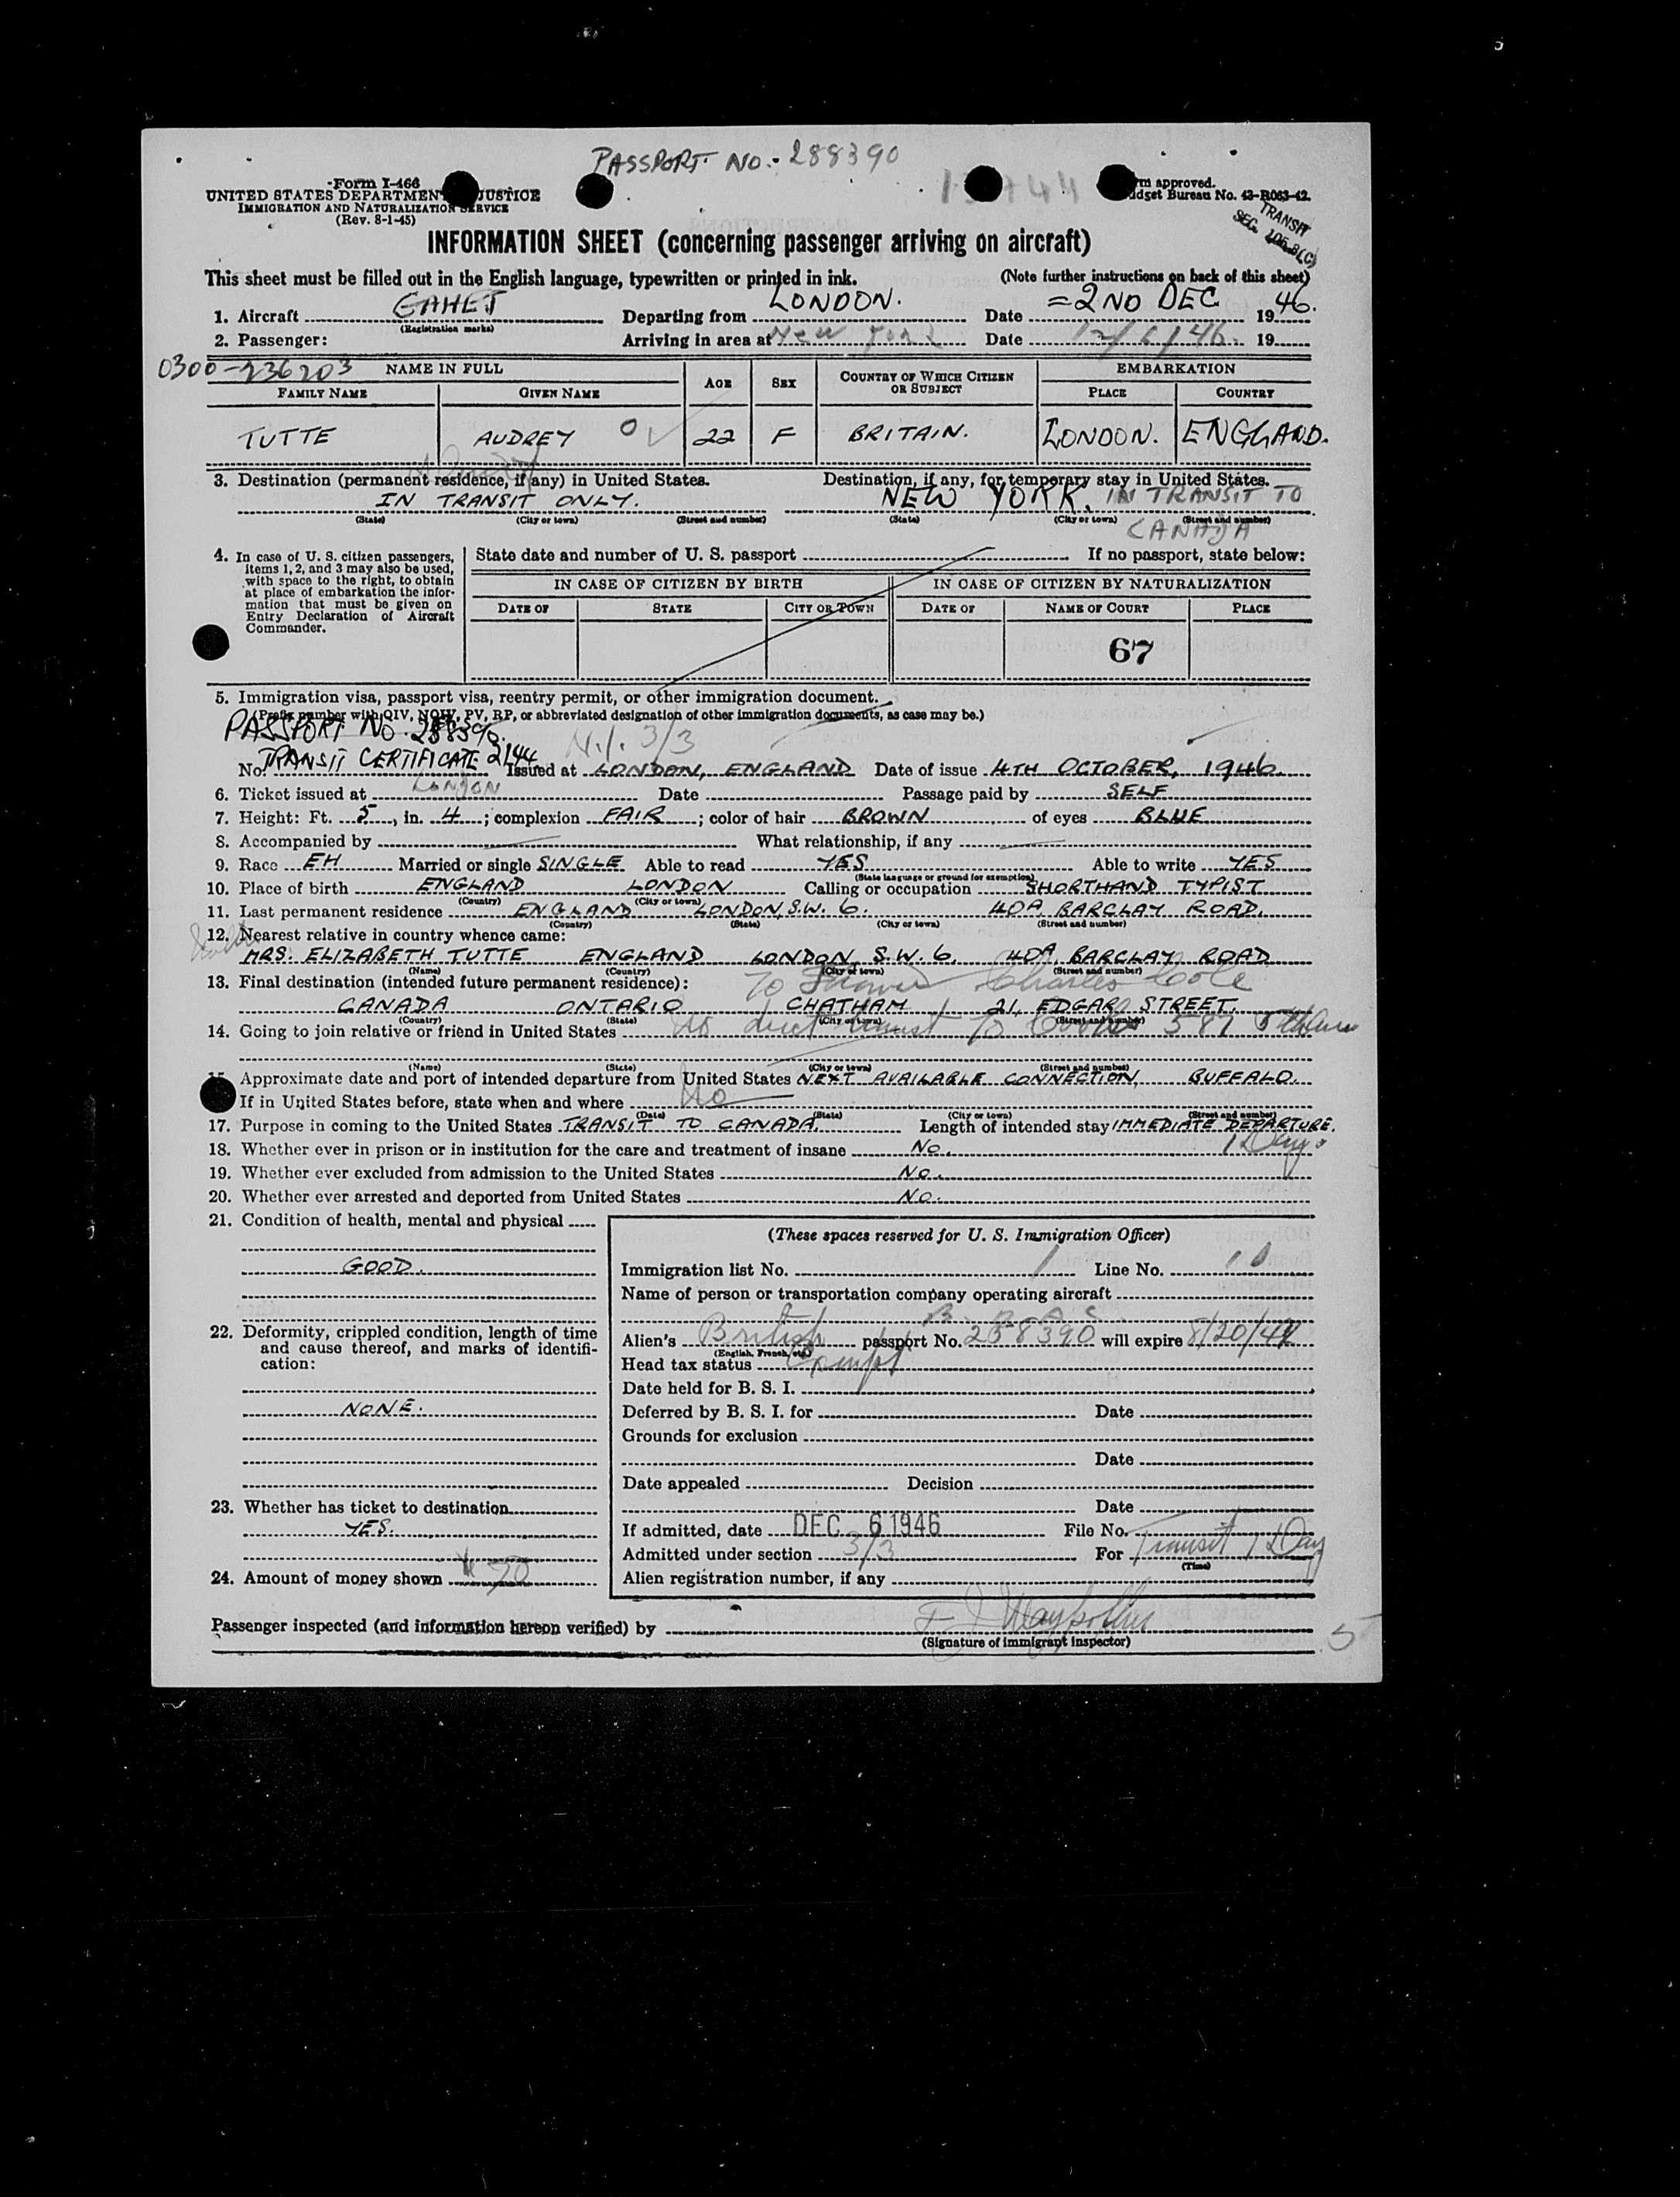 PASSPORT NO:- 288390
Form I-466
UNITED STATES DEPARTMENT JUSTICE
IMMIGRATION AND NATURALIZATION SERVICE
(Rev. 8-1-45)
approved.
Bureau No. 43-R063-42.
TRANSIT
SEC.
INFORMATION SHEET (concerning passenger arriving on aircraft)
This sheet must be filled out in the English language, typewritten or printed in ink. (Note further instructions on back of this sheet)
1. Aircraft GAHEJ Departing from LONDON. Date 2ND DEC 1946.
(Registration marks)
2. Passenger: Arriving in area at New York Date 12/6/46. 19
0300-236203 NAME IN FULL AGE SEX COUNTRY OF WHICH CITIZEN OR SUBJECT EMBARKATION
FAMILY NAME GIVEN NAME PLACE COUNTRY
TUTTE AUDREY 22 F BRITAIN. LONDON. ENGLAND.
3. Destination (permanent residence, if any) in United States. Destination, if any, for temporary stay in United States.
IN TRANSIT ONLY. NEW YORK. IN TRANSIT TO
(State) (City or town) (Street and number) (State) (City or town) (Street and number)
CANADA
4. In case of U. S. citizen passengers, items 1, 2, and 3 may also be used, with space to the right, to obtain at place of embarkation the information that must be given on Entry Declaration of Aircraft Commander.
State date and number of U. S. passport If no passport, state below:
IN CASE OF CITIZEN BY BIRTH IN CASE OF CITIZEN BY NATURALIZATION
DATE OF STATE CITY OR TOWN DATE OF NAME OF COURT PLACE
67
5. Immigration visa, passport visa, reentry permit, or other immigration document.
(Prefix number with QIV, NQIV, PV, RP, or abbreviated designation of other immigration documents, as case may be.)
PASSPORT NO. 288390. 3/3
TRANSIT CERTIFICATE 2144
No. Issued at LONDON, ENGLAND Date of issue 4TH OCTOBER, 1946.
6. Ticket issued at LONDON Date Passage paid by SELF
7. Height: Ft. 5, in. 4; complexion FAIR; color of hair BROWN of eyes BLUE
8. Accompanied by What relationship, if any
9. Race EH Married or single SINGLE Able to read YES Able to write YES
(State language or ground for exemption)
10. Place of birth ENGLAND LONDON Calling or occupation SHORTHAND TYPIST
(Country) (City or town)
11. Last permanent residence ENGLAND LONDON, S.W. 6. 40A, BARCLAY ROAD.
(Country) (State) (City or town) (Street and number)
12. Nearest relative in country whence came:
MRS. ELIZABETH TUTTE ENGLAND LONDON S.W. 6. 40A, BARCLAY ROAD
(Name) (Country) (City or town) (Street and number)
13. Final destination (intended future permanent residence): To Charles Cole
CANADA ONTARIO CHATHAM 21, EDGAR STREET.
(Country) (State) (City or town) (Street and number)
14. Going to join relative or friend in United States 587 5th Ave
(Name) (State) (City or town) (Street and number)
Approximate date and port of intended departure from United States NEXT AVAILABLE CONNECTION, BUFFALO.
If in United States before, state when and where No
(Date) (State) (City or town) (Street and number)
17. Purpose in coming to the United States TRANSIT TO CANADA. Length of intended stay IMMEDIATE DEPARTURE.
1 Day.
18. Whether ever in prison or in institution for the care and treatment of insane NO.
19. Whether ever excluded from admission to the United States NO.
20. Whether ever arrested and deported from United States NO.
21. Condition of health, mental and physical
GOOD.
22. Deformity, crippled condition, length of time and cause thereof, and marks of identification:
NONE.
23. Whether has ticket to destination
YES.
24. Amount of money shown
(These spaces reserved for U. S. Immigration Officer)
Immigration list No. 1 Line No. 10
Name of person or transportation company operating aircraft
Alien's British passport No. 258390 will expire
(English, French, etc.)
Head tax status Exempt
Date held for B. S. I.
Deferred by B. S. I. for Date
Grounds for exclusion
Date
Date appealed Decision
Date
If admitted, date DEC 6 1946 File No.
Admitted under section 3/3 For Transit 1 Day
(Time)
Alien registration number, if any
Passenger inspected (and information hereon verified) by
(Signature of immigrant inspector)
5